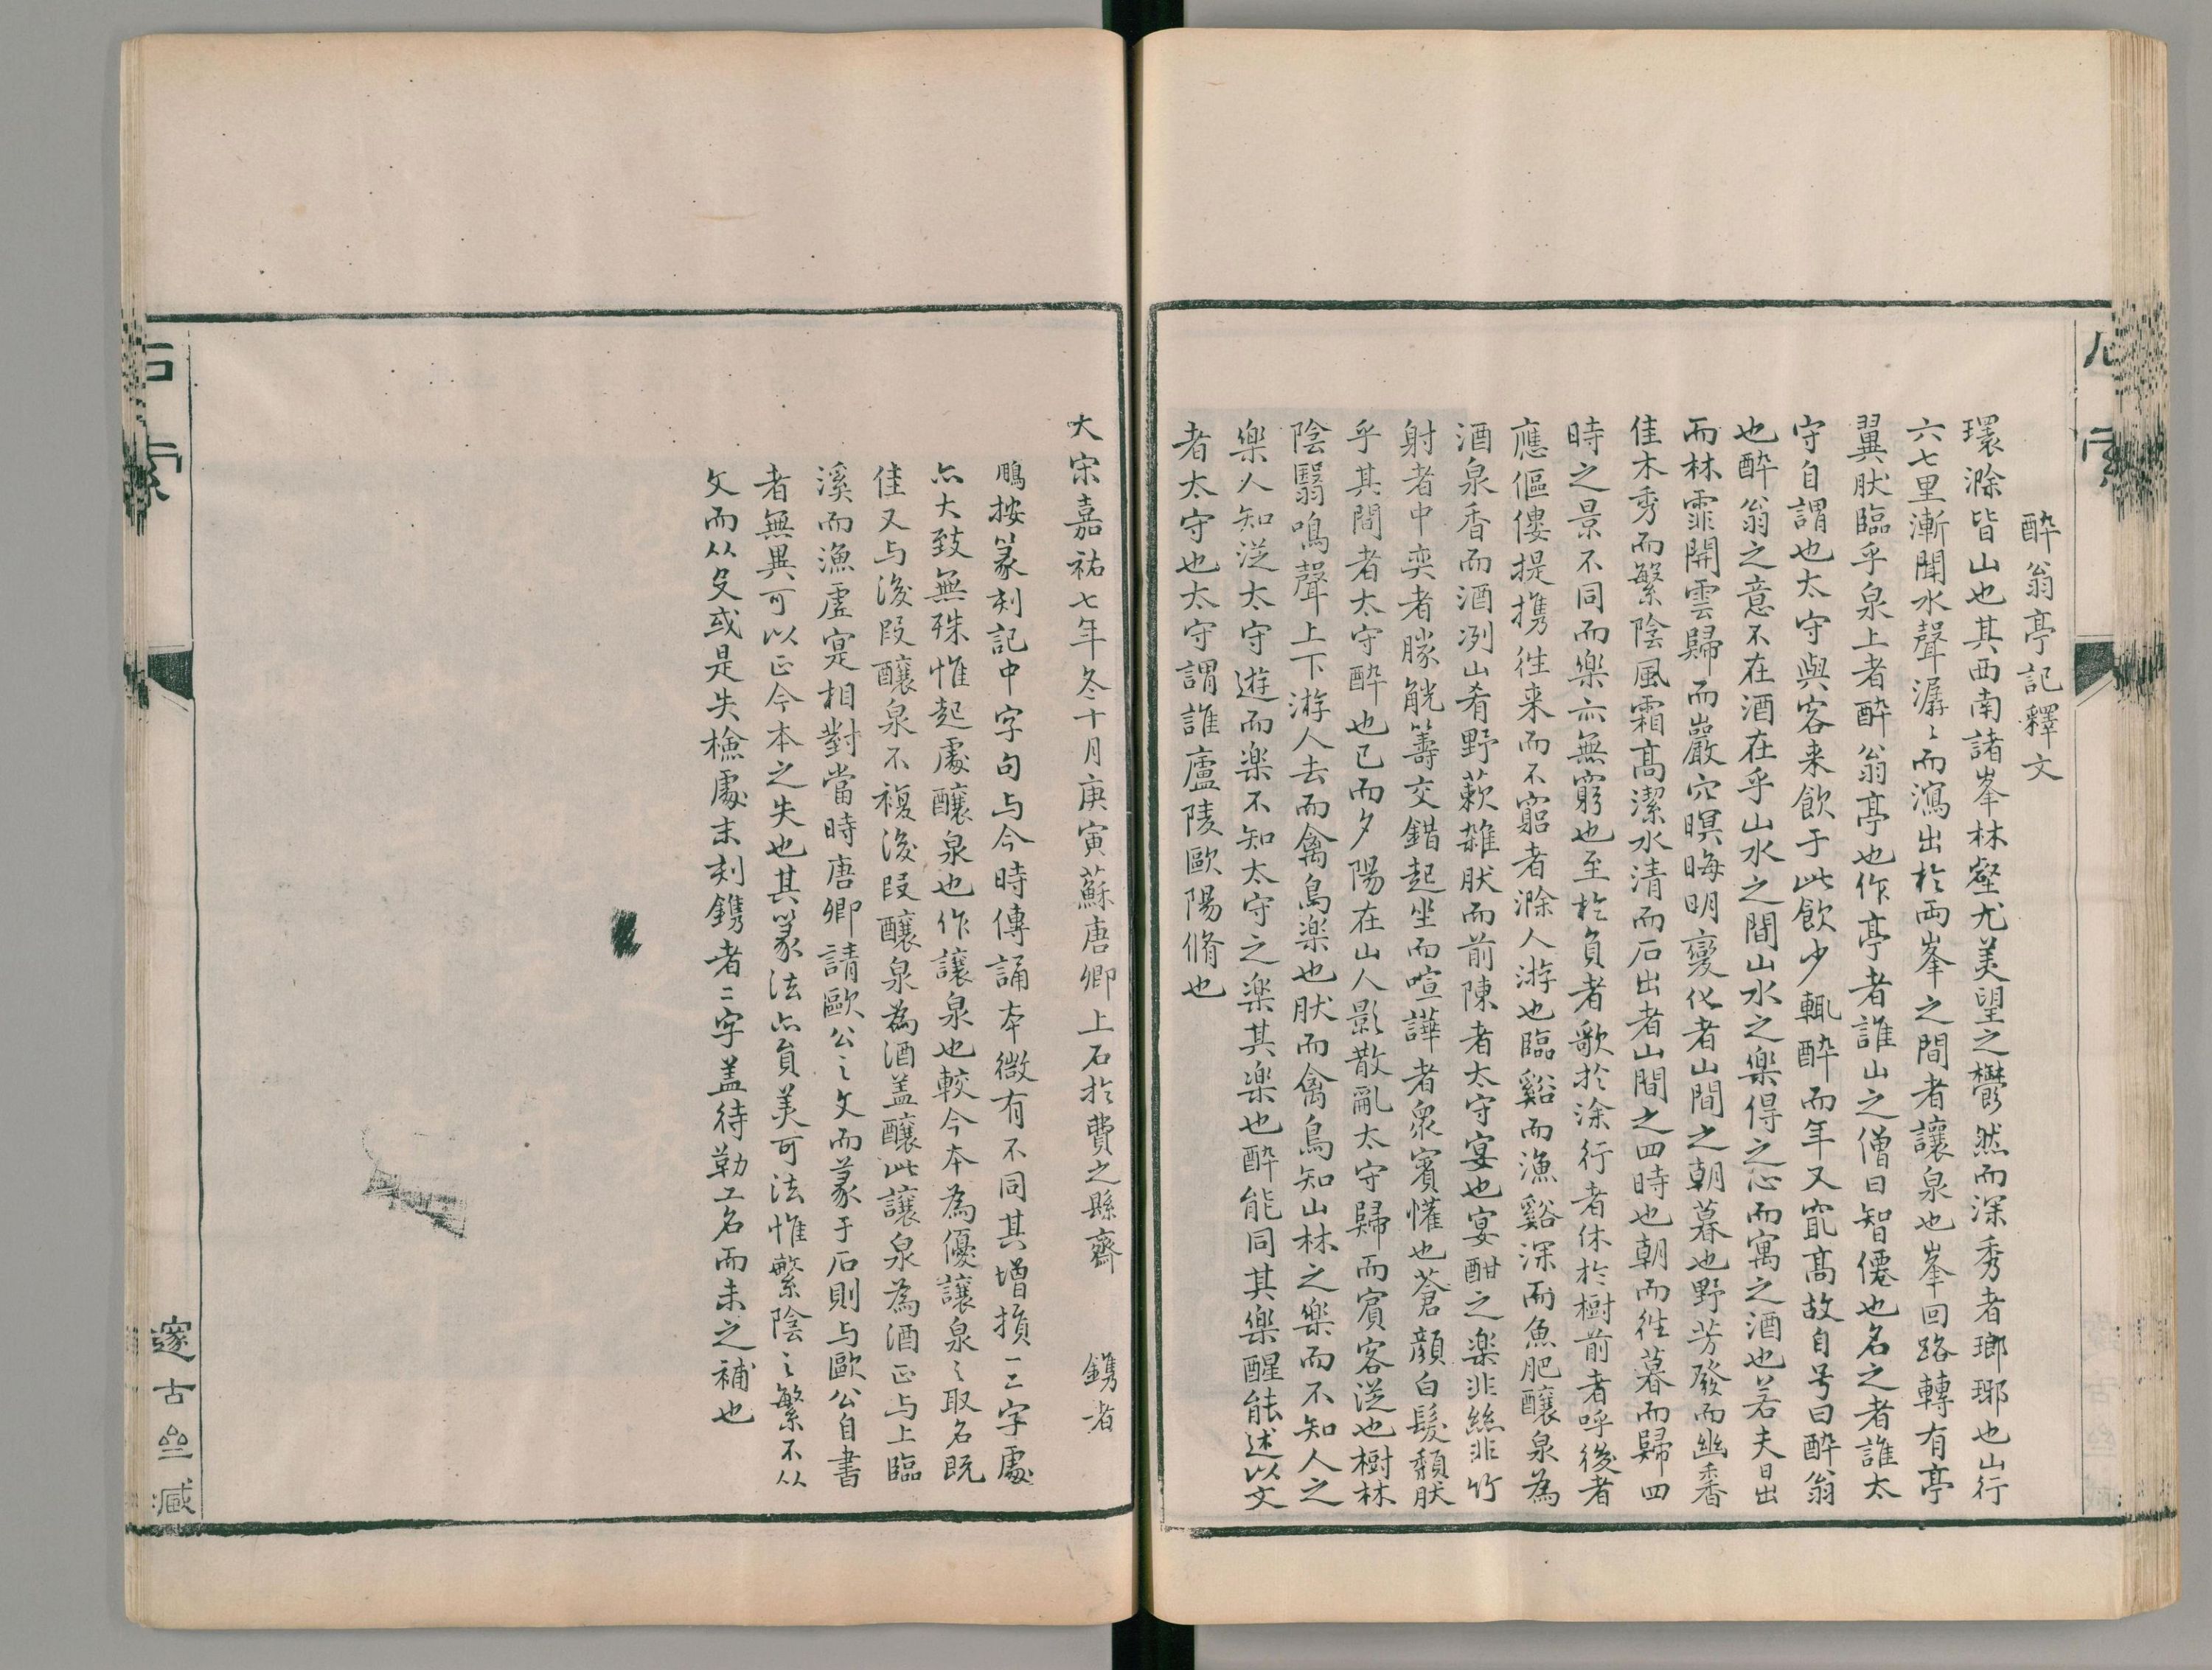 醉翁亭記釋文
環滁皆山也其西南諸峯林壑尤美望之欝然而深秀者瑯琊也山行
六七里漸聞水聲潺〻而瀉出於兩峯之間者讓泉也峯回路轉有亭
翼肰臨乎泉上者醉翁亭也作亭者誰山之僧曰智僊也名之者誰太
守自謂也太守與客来飲于此飲少輒醉而年又㝡髙故自号曰醉翁
也醉翁之意不在酒在乎山水之間山水之樂得之心而寓之酒也若夫日出
而林霏開雲歸而巖穴暝晦明變化者山間之朝暮也野芳發而幽香
佳木秀而繁陰風霜髙潔水清而石出者山間之四時也朝而徃暮而歸四
時之景不同而樂亦無窮也至於負者歌於涂行者休於樹前者呼後者
應傴僂提携徃来而不窮者滁人游也臨谿而漁谿深而魚肥釀泉為
酒泉香而酒冽山肴野蔌雜肰而前陳者太守宴也宴酣之樂非絲非竹
射者中奕者勝觥籌交錯起坐而喧譁者衆賓懽也蒼顔白髪頹肰
乎其間者太守醉也已而夕陽在山人影散亂太守歸而賓客從也樹林
陰翳鳴聲上下游人去而禽鳥樂也肰而禽鳥知山林之樂而不知人之
樂人知從太守遊而樂不知太守之樂其樂也醉能同其樂醒能述以文
者太守也太守謂誰廬陵歐陽脩也
大宋嘉祐七年冬十月庚寅蘇唐卿上石於費之縣齋 鐫者
鵬按篆刻記中字句与今時傳誦本微有不同其增損一二字處
亦大致無殊惟起處釀泉也作讓泉也較今本為優讓泉之取名既
佳又与後段釀泉不複後段釀泉為酒盖釀此讓泉為酒正与上臨
溪而漁虛寔相對當時唐卿請歐公之文而篆于石則与歐公自書
者無異可以正今本之失也其篆法亦員美可法惟繁陰之繁不从
攵而从殳或是失檢處末刻鐫者二字盖待勒工名而未之補也
石索
邃古亝臧